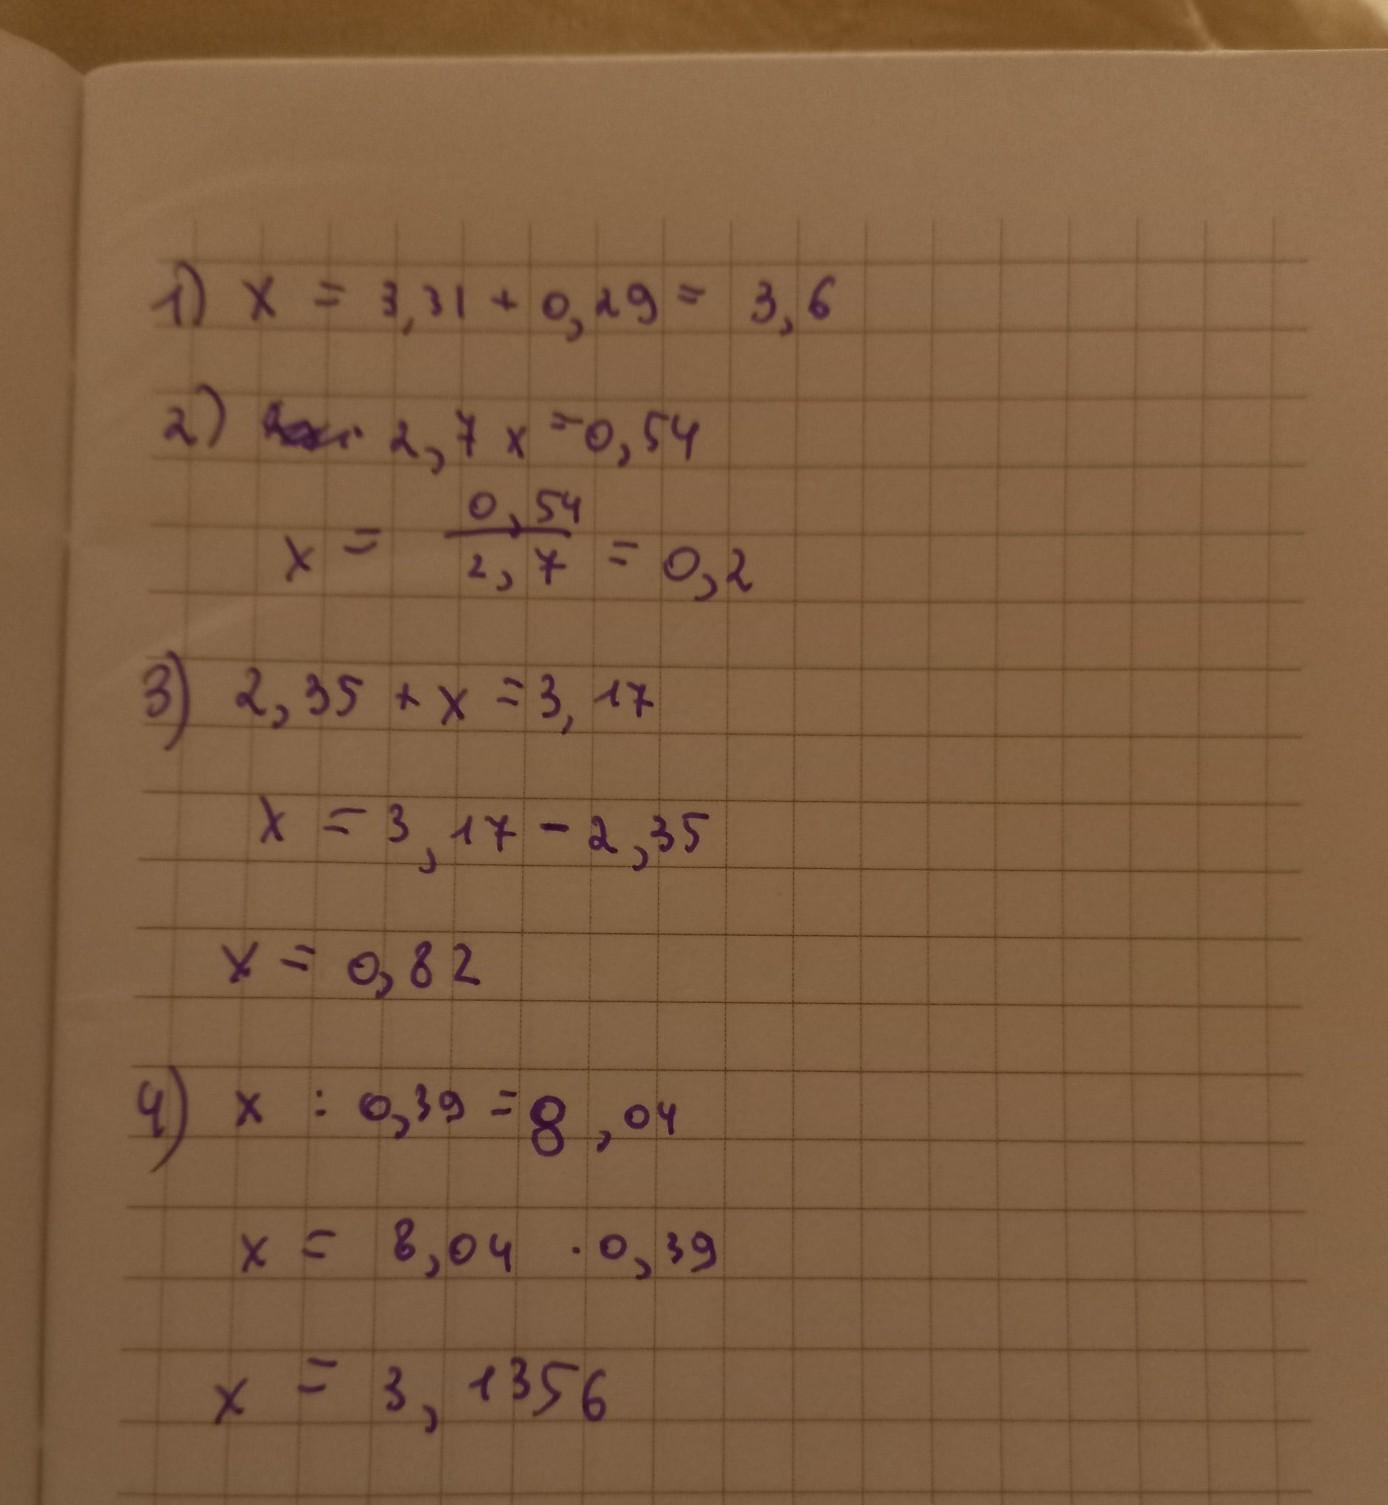 1) x = 3,31 + 0,29 = 3,6
2) 2,7 x = 0,54
x = 0,54 / 2,7 = 0,2
3) 2,35 + x = 3,17
x = 3,17 - 2,35
x = 0,82
4) x : 0,39 = 8,04
x = 8,04 · 0,39
x = 3,1356